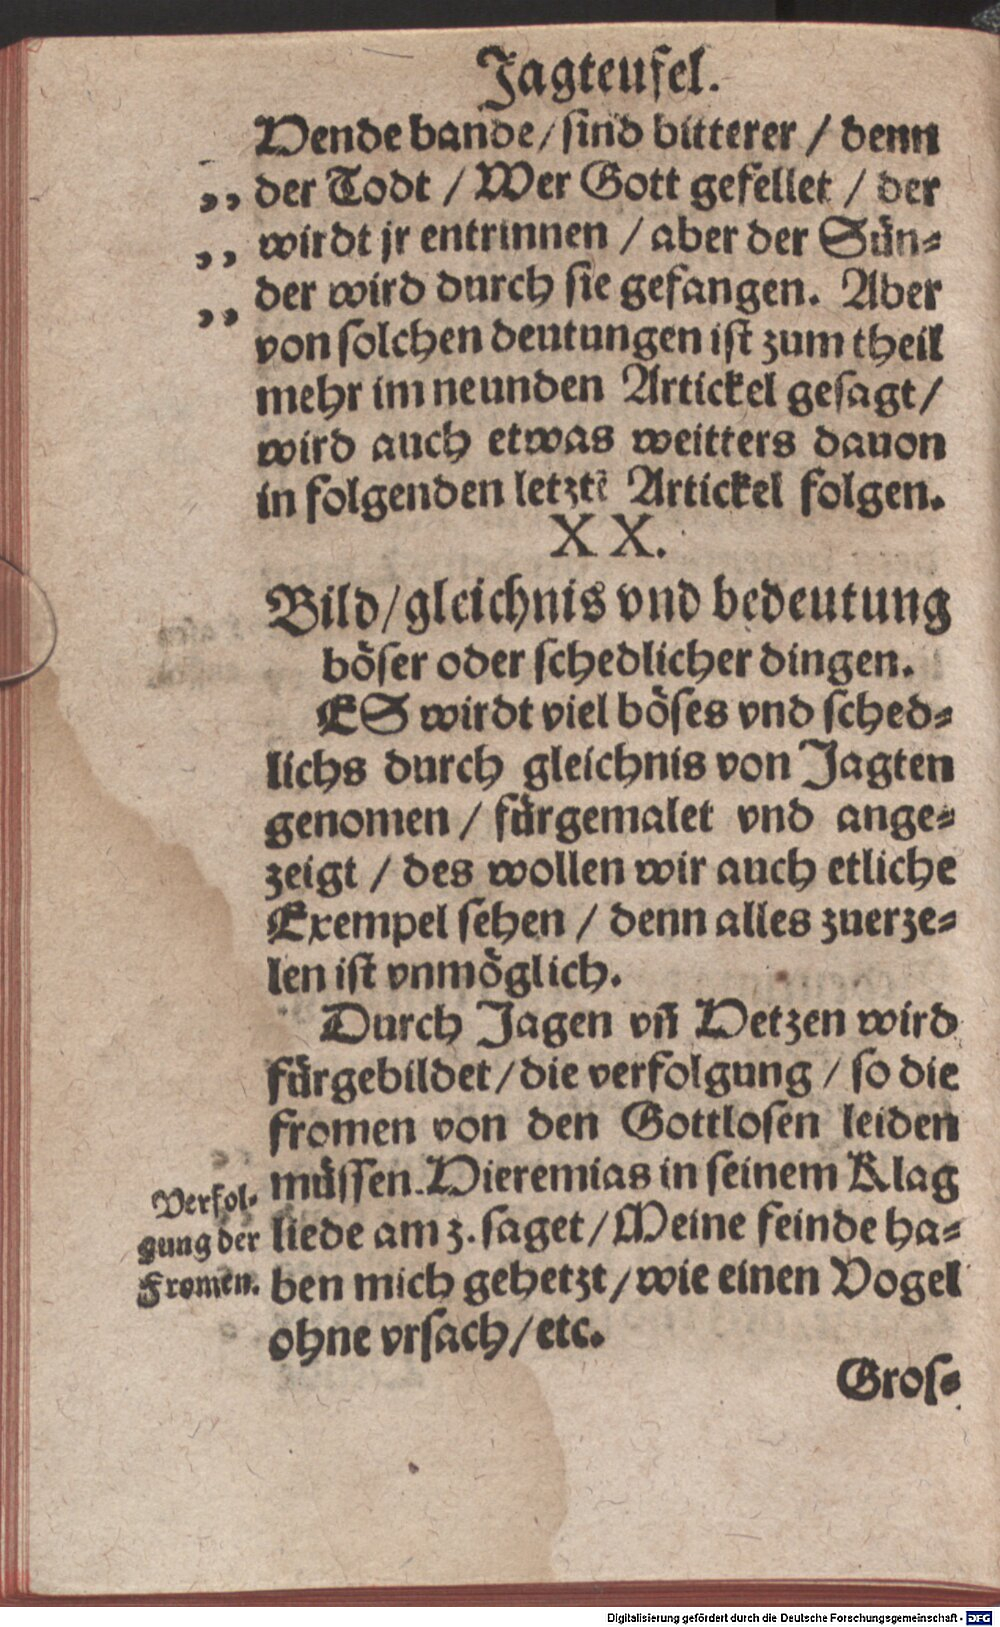 Jagteufel.
Hende bande/ sind bitterer / denn
„ der Todt / Wer Gott gefellet / der
„ wirdt jr entrinnen / aber der Sün⸗
„ der wird durch sie gefangen. Aber
von solchen deutungen ist zum theil
mehr im neunden Artickel gesagt/
wird auch etwas weitters dauon
in folgenden letztẽ Artickel folgen.
XX.
Bild/gleichnis vnd bedeutung
böser oder schedlicher dingen.
ES wirdt viel böses vnd sched⸗
lichs durch gleichnis von Jagten
genomen / fürgemalet vnd ange⸗
zeigt / des wollen wir auch etliche
Exempel sehen / denn alles zuerze⸗
len ist vnmöglich.
Durch Jagen vñ Hetzen wird
fürgebildet/die verfolgung / so die
fromen von den Gottlosen leiden
müssen. Hieremias in seinem Klag
liede am 3. saget/Meine feinde ha⸗
ben mich gehetzt/wie einen Vogel
ohne vrsach/etc.
Verfol⸗
gung der
Fromen.
Gros⸗
Digitalisierung gefördert durch die Deutsche Forschungsgemeinschaft - DFG